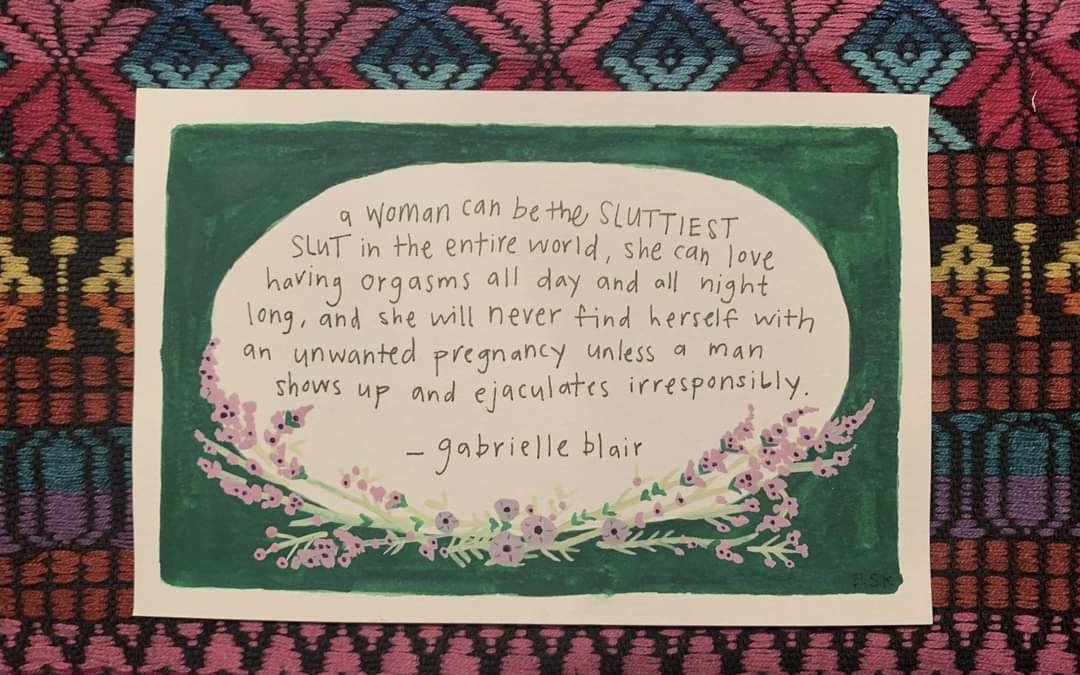 a woman can be the SLUTTIEST
SLUT in the entire world, she can love
having orgasms all day and all night
long, and she will never find herself with
an unwanted pregnancy unless a man
shows up and ejaculates irresponsibly.
- gabrielle blair
FSK